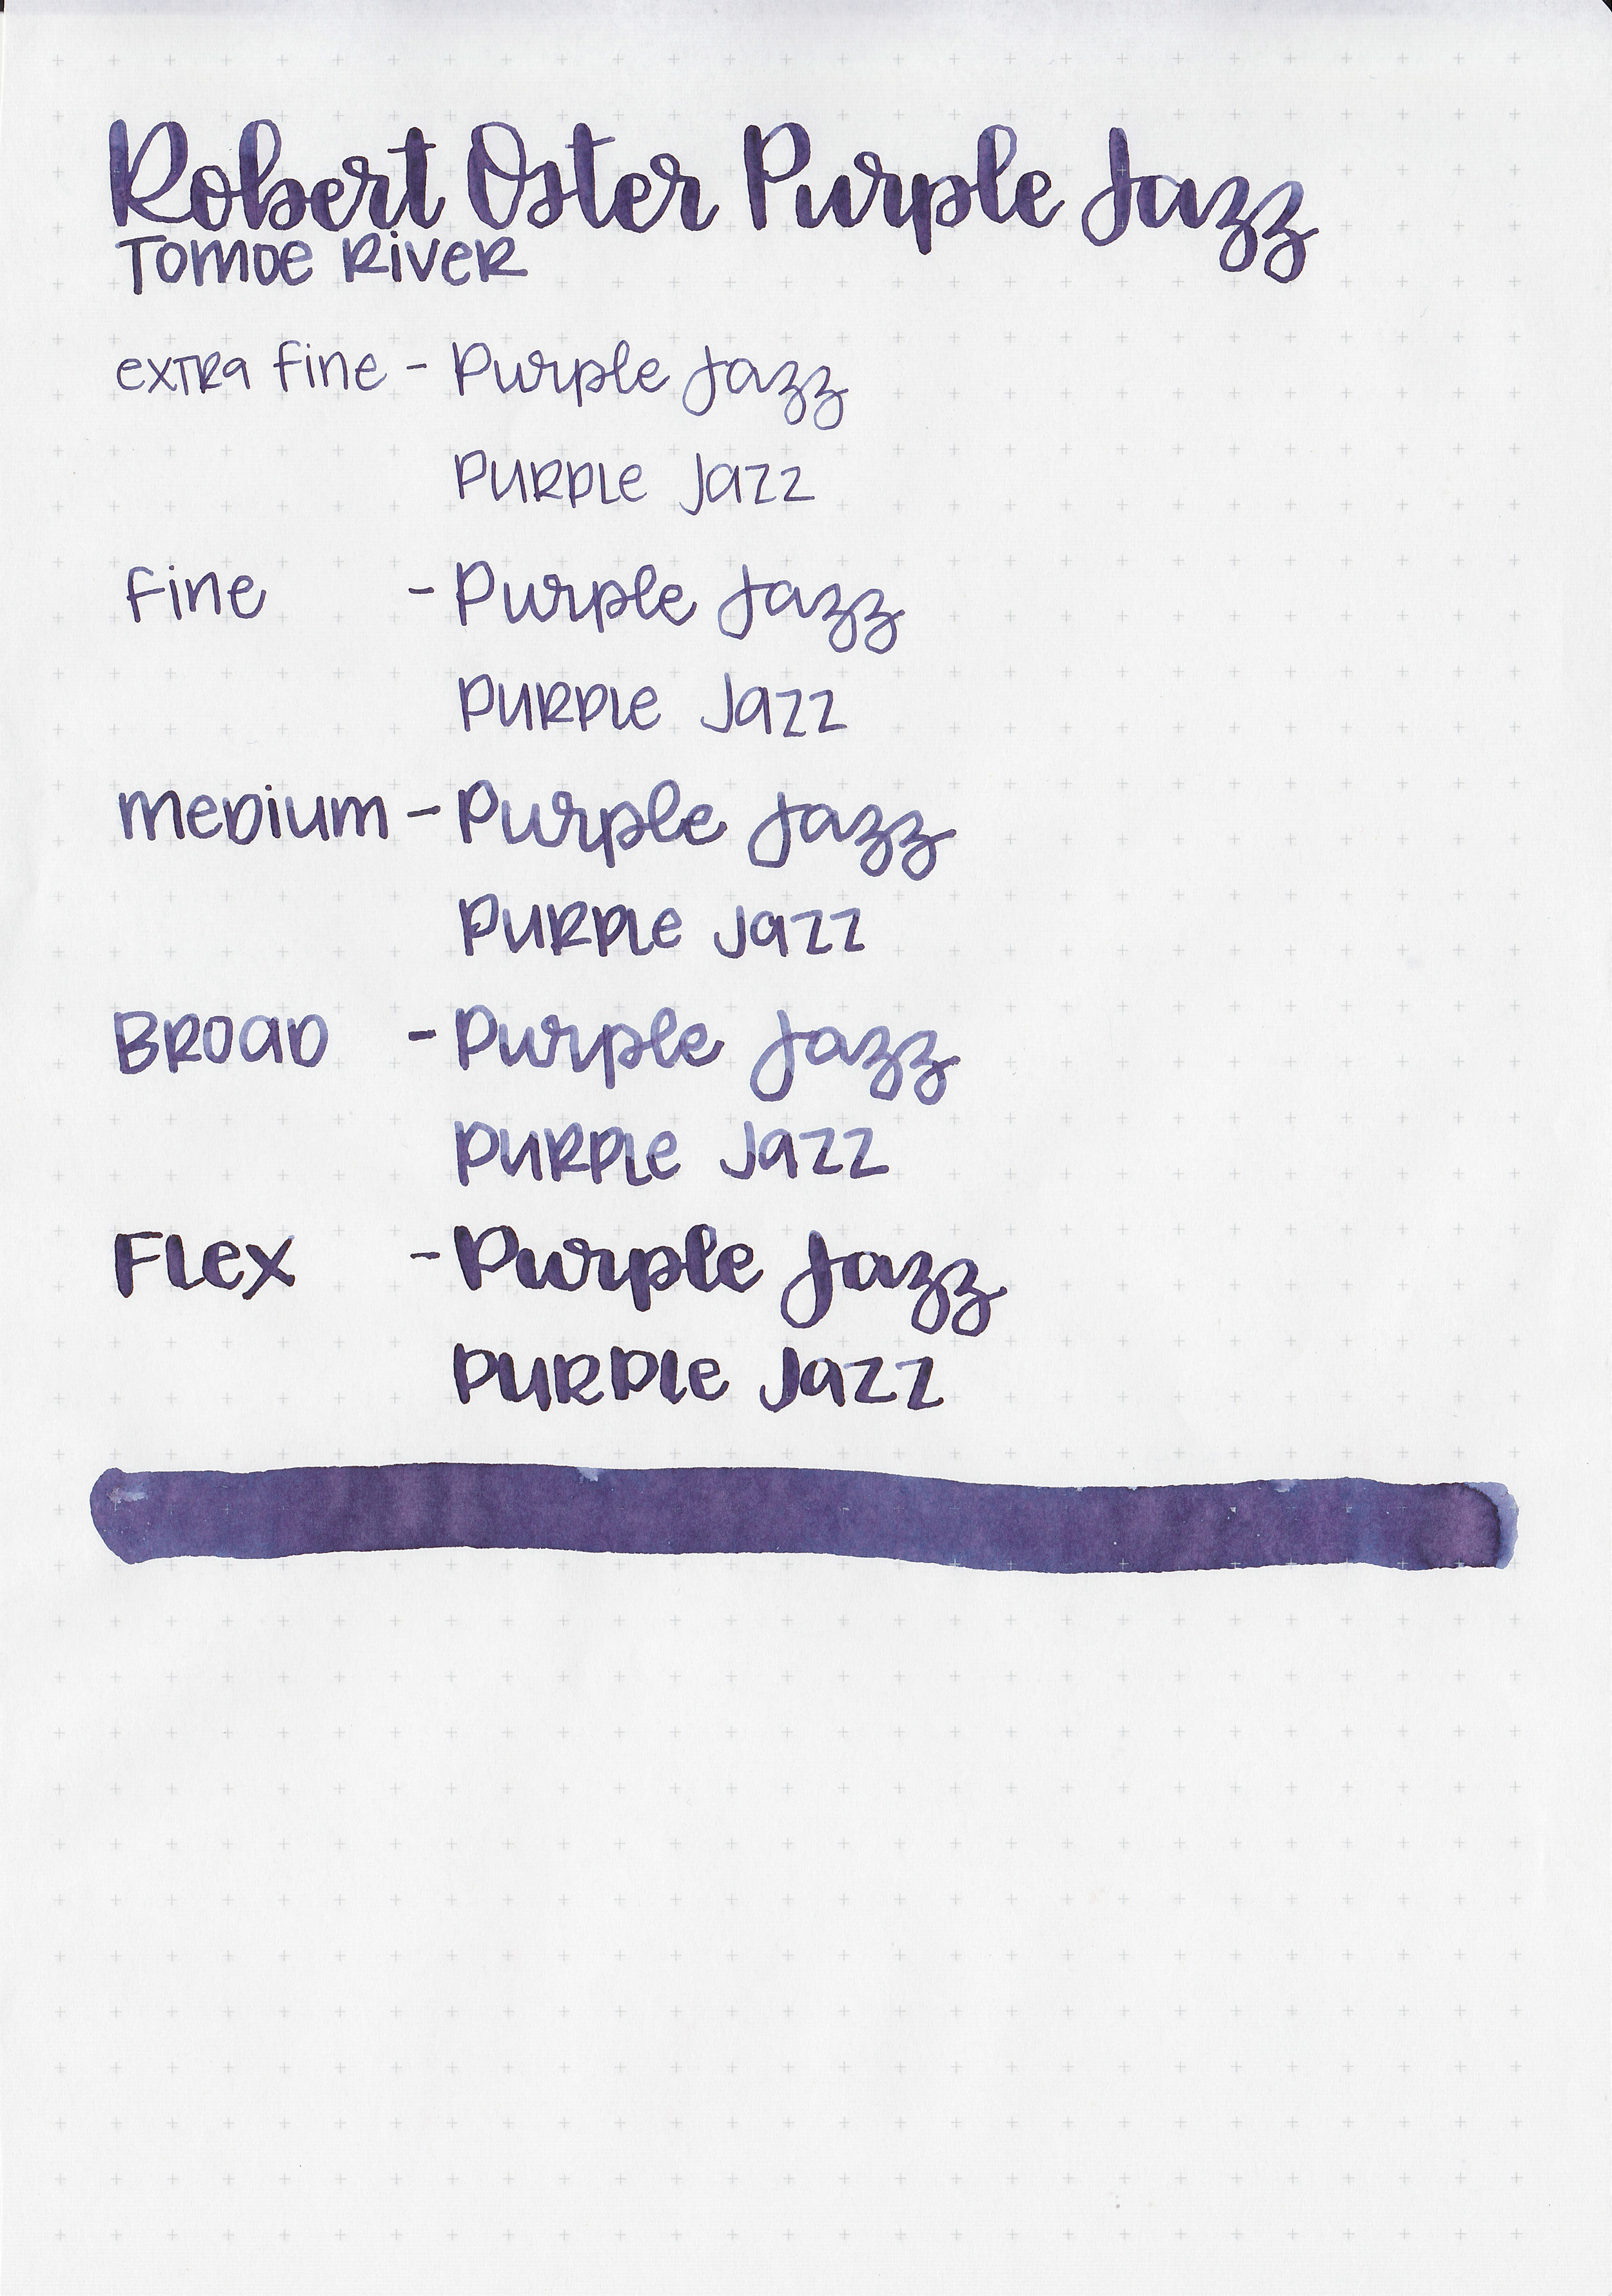 Robert Oster Purple Jazz
Tomoe River
extra fine - Purple Jazz
Purple Jazz
fine - Purple Jazz
Purple Jazz
medium - Purple Jazz
Purple Jazz
Broad - Purple Jazz
Purple Jazz
Flex - Purple Jazz
Purple Jazz